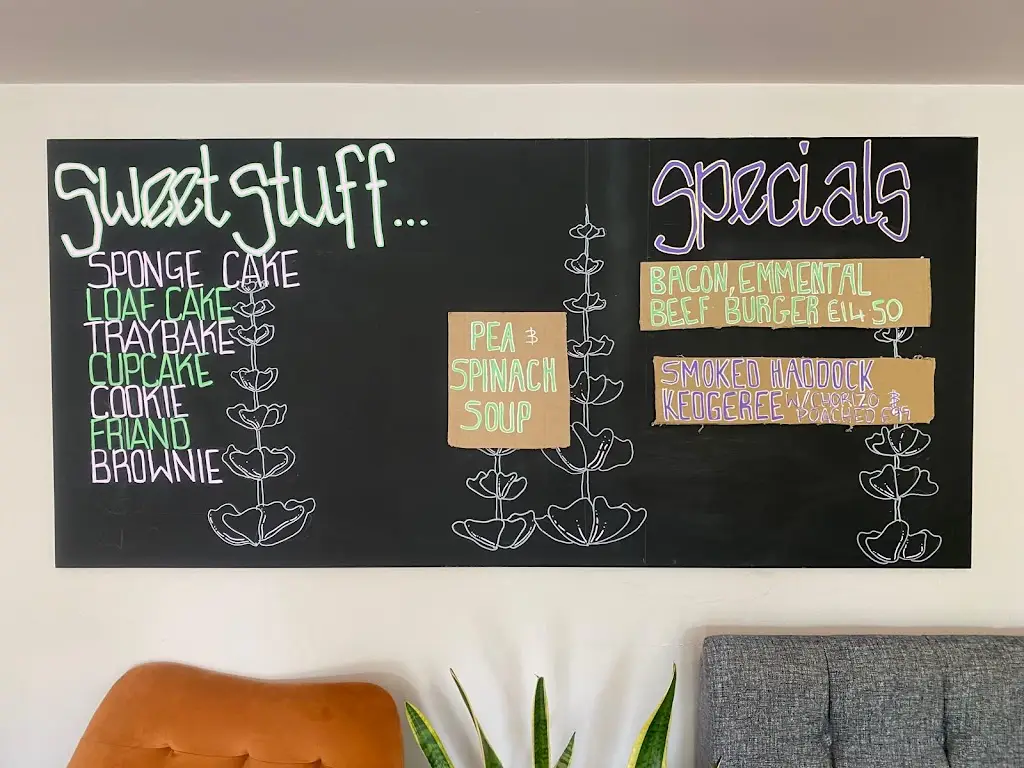 Sweet Stuff...
SPONGE CAKE
LOAF CAKE
TRAYBAKE
CUPCAKE
COOKIE
FRIAND
BROWNIE
PEA &
SPINACH
SOUP
Specials
BACON, EMMENTAL
BEEF BURGER £14.50
SMOKED HADDOCK
KEDGEREE W/CHORIZO &
POACHED